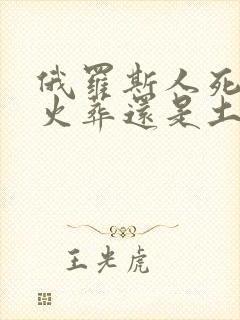 俄羅斯人死
火葬還是土
王光虎